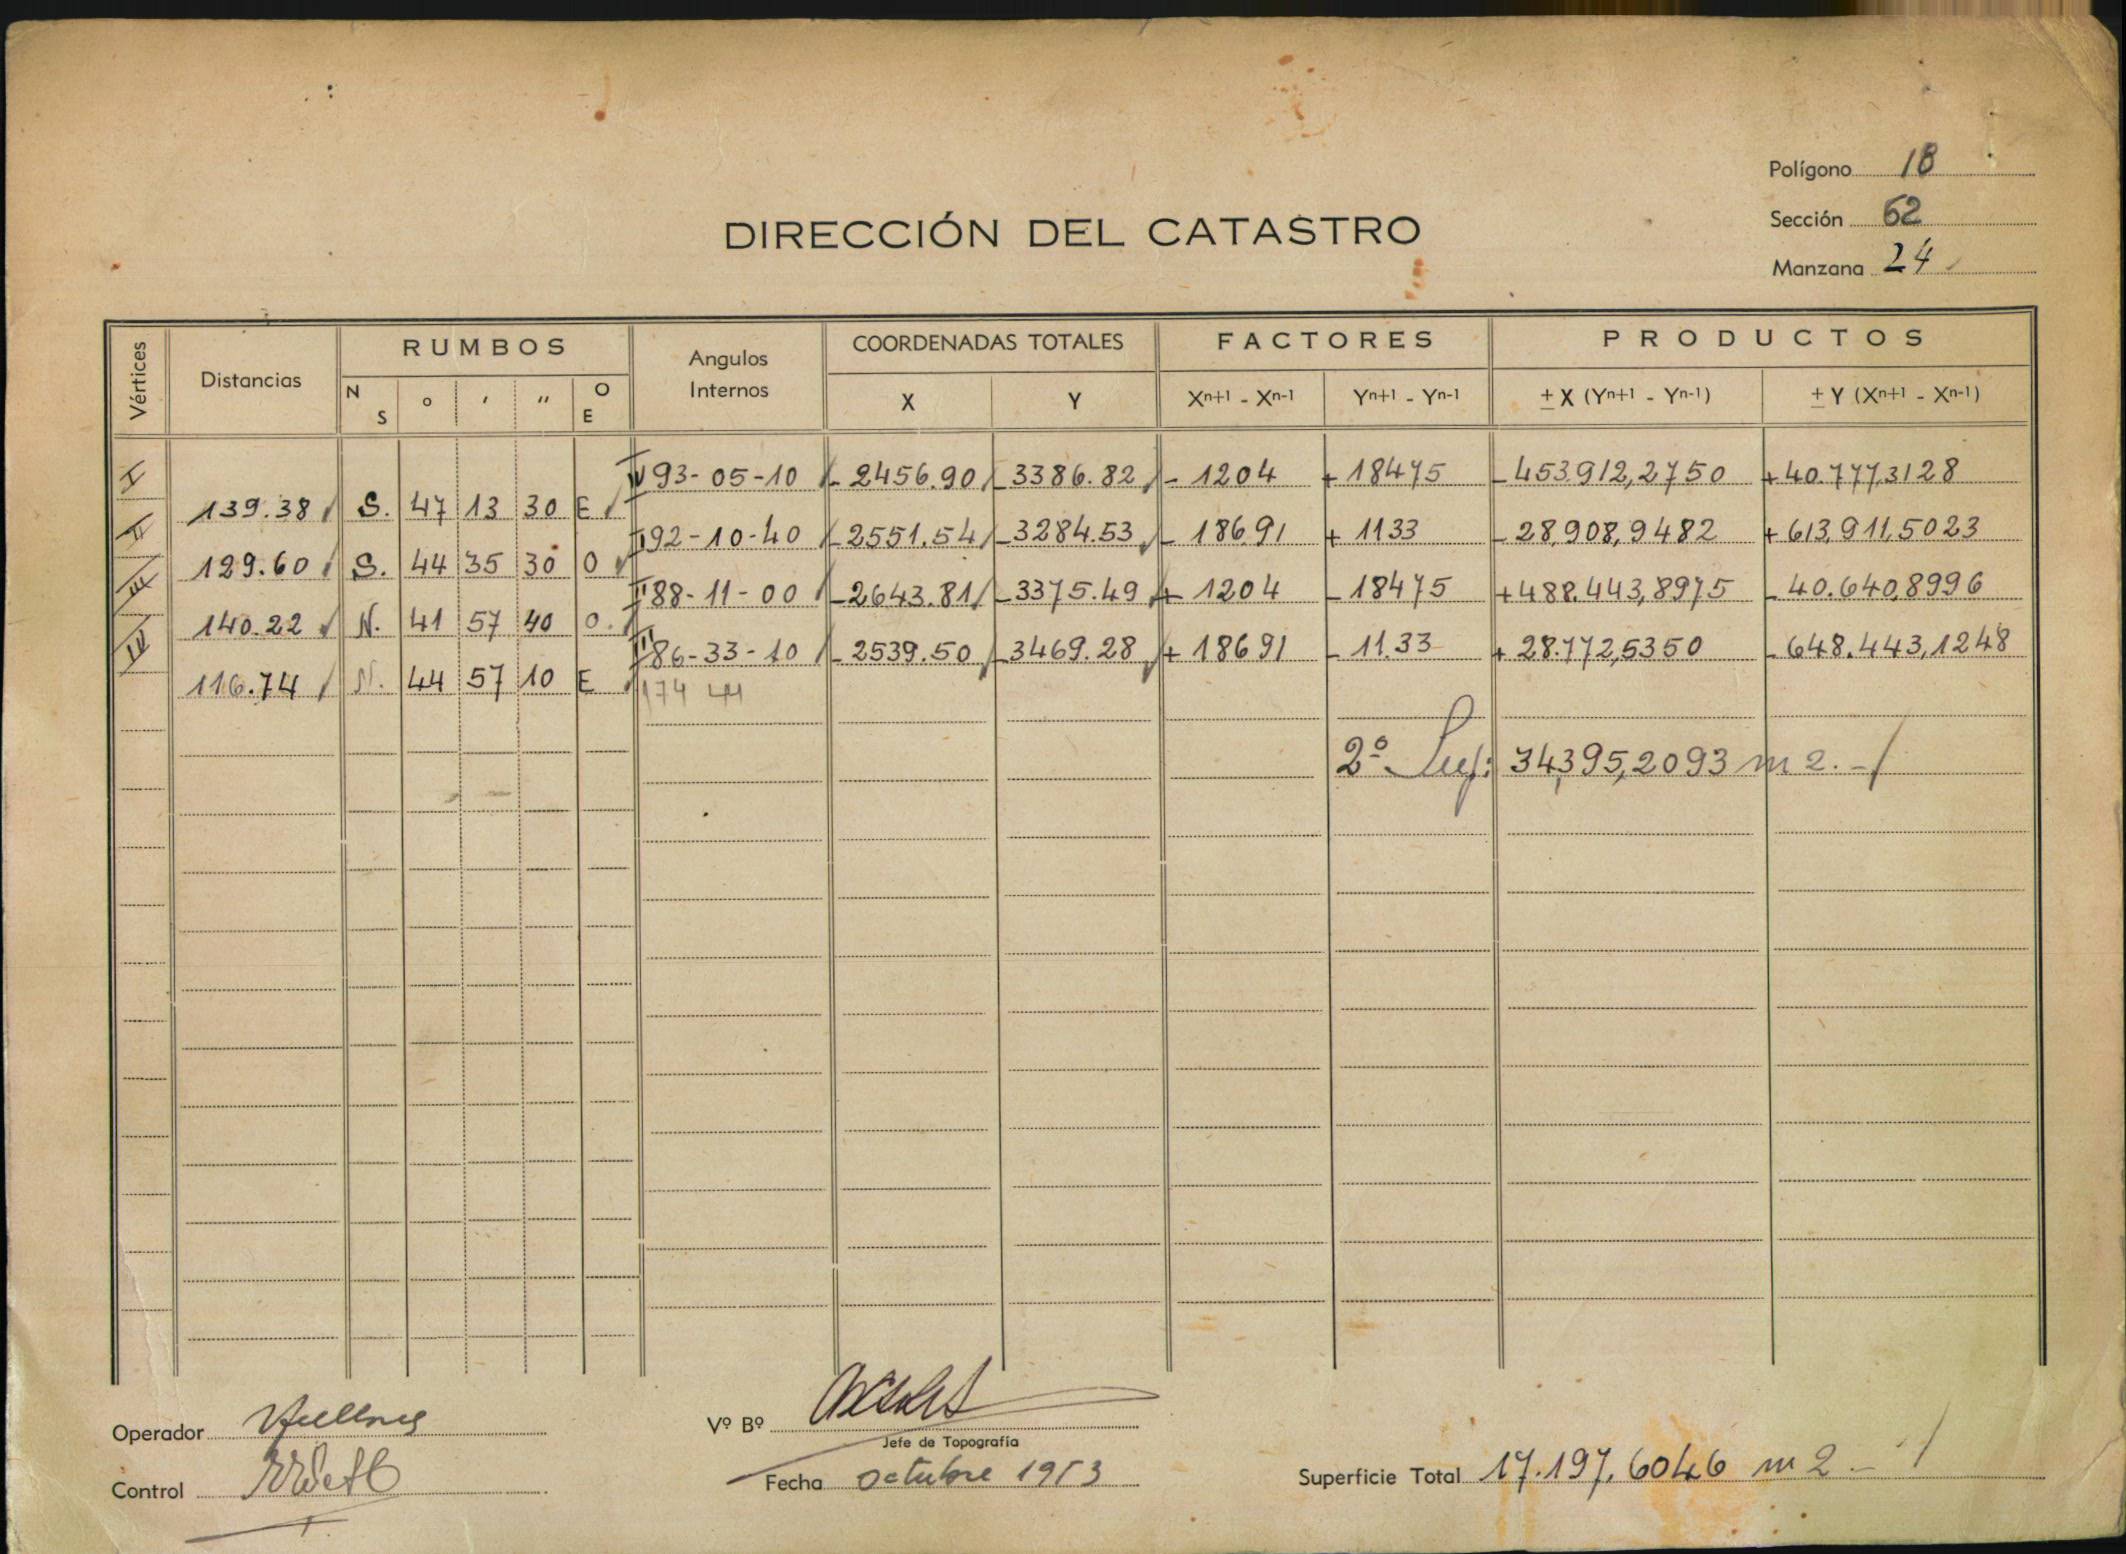 Polígono 18
Sección 62
Manzana 24
DIRECCIÓN DEL CATASTRO
Vértices Distancias RUMBOS Angulos Internos COORDENADAS TOTALES FACTORES PRODUCTOS
N S ° ' '' O E X Y Xn+1 - Xn-1 Yn+1 - Yn-1 ± X (Yn+1 - Yn-1) ± Y (Xn+1 - Xn-1)
I IV 93-05-10 -2456.90 -3386.82 - 1204 + 18475 -453.912,2750 +40.777,3128
139.38 S. 47 13 30 E
II I 92-10-40 -2551.54 -3284.53 - 18691 + 1133 -28,908,9482 +613,911,5023
129.60 S. 44 35 30 O
III 88-11-00 -2643.81 -3375.49 + 1204 - 18475 +488.443,8975 -40.640,8996
140.22 N. 41 57 40 O.
IV 86-33-10 -2539.50 -3469.28 + 18691 - 11.33 +28.772,5350 -648.443,1248
116.74 N. 44 57 10 E
2º Sup: 34,395,2093 m2.-
Operador
Vº Bº
Jefe de Topografía
Control
Fecha octubre 1953
Superficie Total 17.197,6046 m2-